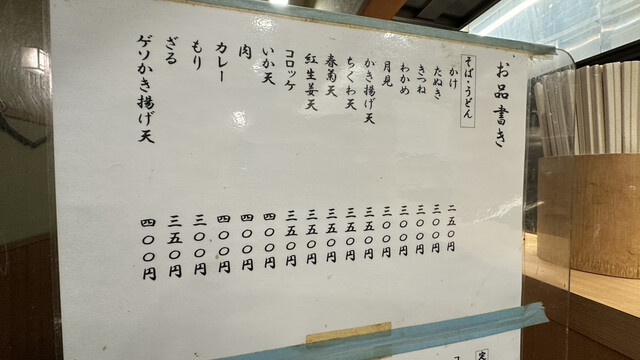 お品書き
そば・うどん
かけ 二五〇円
たぬき 三〇〇円
きつね 三〇〇円
わかめ 三〇〇円
月見 三〇〇円
かき揚げ天 三五〇円
ちくわ天 三五〇円
春菊天 三五〇円
紅生姜天 三五〇円
コロッケ 三五〇円
いか天 四〇〇円
肉 四〇〇円
カレー 四〇〇円
もり 三〇〇円
ざる 三五〇円
ゲソかき揚げ天 四〇〇円
定